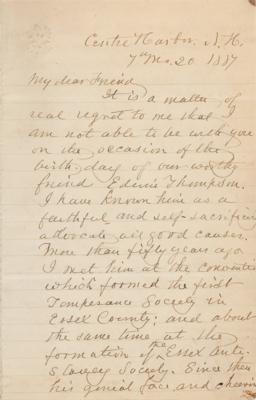 Centre Harbor, N.H.
7th Mo. 20 1887
My dear Friend
It is a matter of
real regret to me that I
am not able to be with you
on the occasion of the
birth-day of our worthy
friend Edwin Thompson.
I have known him as a
faithful and self-sacrificing
advocate all good causes.
More than fifty years ago
I met him at the convention
which formed the first
Temperance Society in
Essex County; and about
the same time at the
formation of the Essex Anti-
Slavery Society. Since then
his genial face and cheering